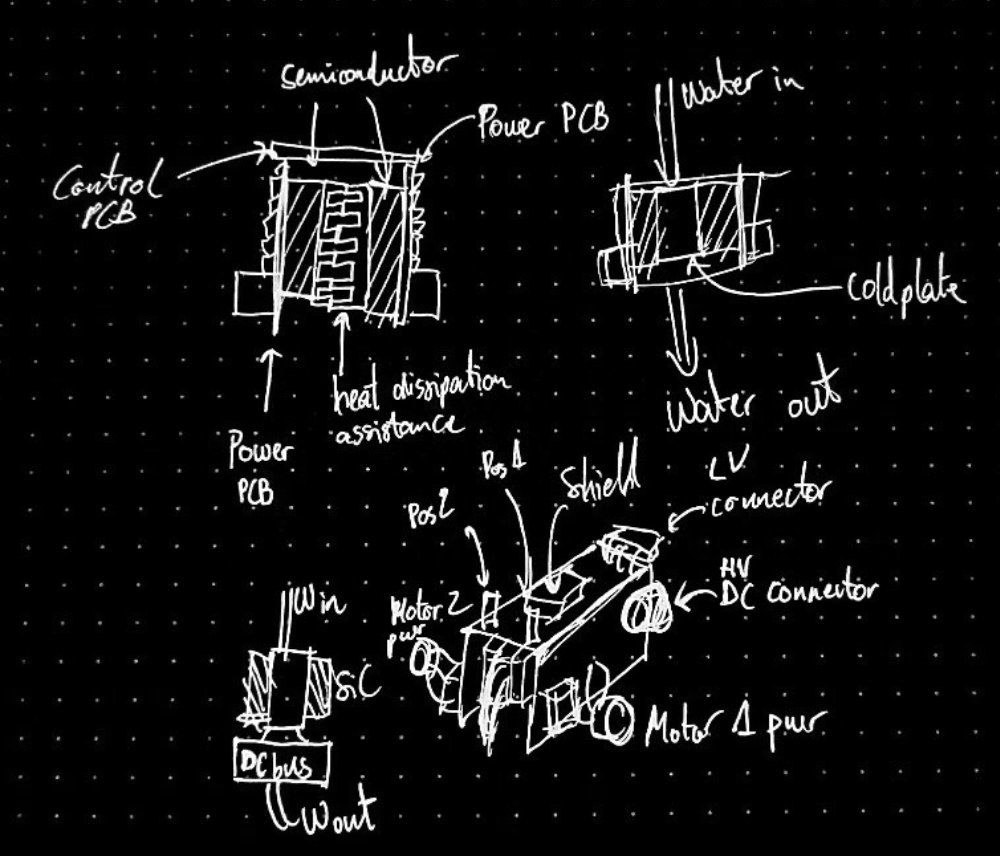 Semiconductor
Power PCB
Control
PCB
heat dissipation
assistance
Power
PCB
Water in
Cold plate
Water out
Pos 2
Pos 1
Shield
LV
connector
HV
DC connector
Motor 2
pwr
Motor 1 pwr
Win
SiC
DC bus
Wout